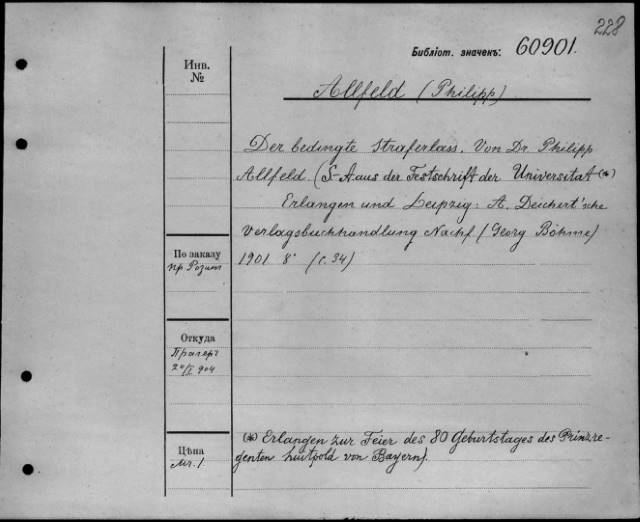 228
Библіот. значекъ: 60901.
Инв.
№
Allfeld (Philipp)
Der bedingte Straferlass. Von Dr. Philipp
Allfeld. (S-A. aus der Festschrift der Universität (*)
Erlangen und Leipzig: A. Deichert'sche
Verlagsbuchhandlung Nachf. (Georg Böhme)
1901 8° (с. 34)
По заказу
пр Розин
Откуда
Прагеръ
20/I 904
Цѣна
Mr. 1
(*) Erlangen zur Feier des 80 Geburtstages des Prinzre-
genten Luitpold von Bayern).